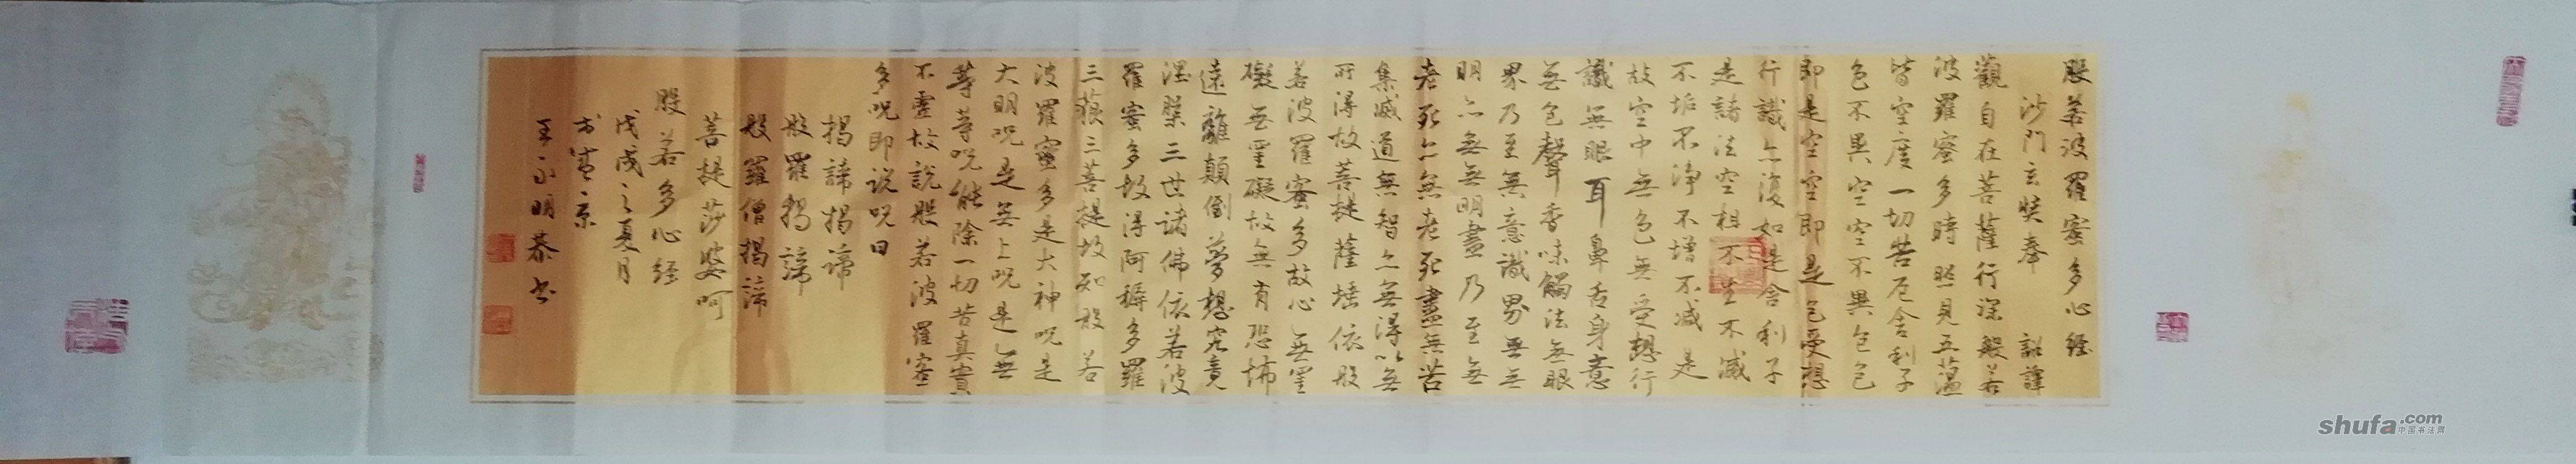 般若波羅蜜多心經
沙門玄奘奉 詔譯
觀自在菩薩行深般若
波羅蜜多時照見五蘊
皆空度一切苦厄舍利子
色不異空空不異色色
即是空空即是色受想
行識亦復如是舍利子
是諸法空相不生不滅
不垢不淨不增不減是
故空中無色無受想行
識無眼耳鼻舌身意
無色聲香味觸法無眼
界乃至無意識界無無
明亦無無明盡乃至無
老死亦無老死盡無苦
集滅道無智亦無得以無
所得故菩提薩埵依般
若波羅蜜多故心無罣
礙無罣礙故無有恐怖
遠離顛倒夢想究竟
涅槃三世諸佛依若波
羅蜜多故得阿耨多羅
三藐三菩提故知般若
波羅蜜多是大神咒是
大明咒是無上咒是無
等等咒能除一切苦真實
不虛故說般若波羅蜜
多咒即说咒曰
揭諦揭諦
般羅揭諦
般羅僧揭諦
菩提莎婆呵
般若多心经
戊戌之夏月
王永明恭书
shufa.com
中国书法网